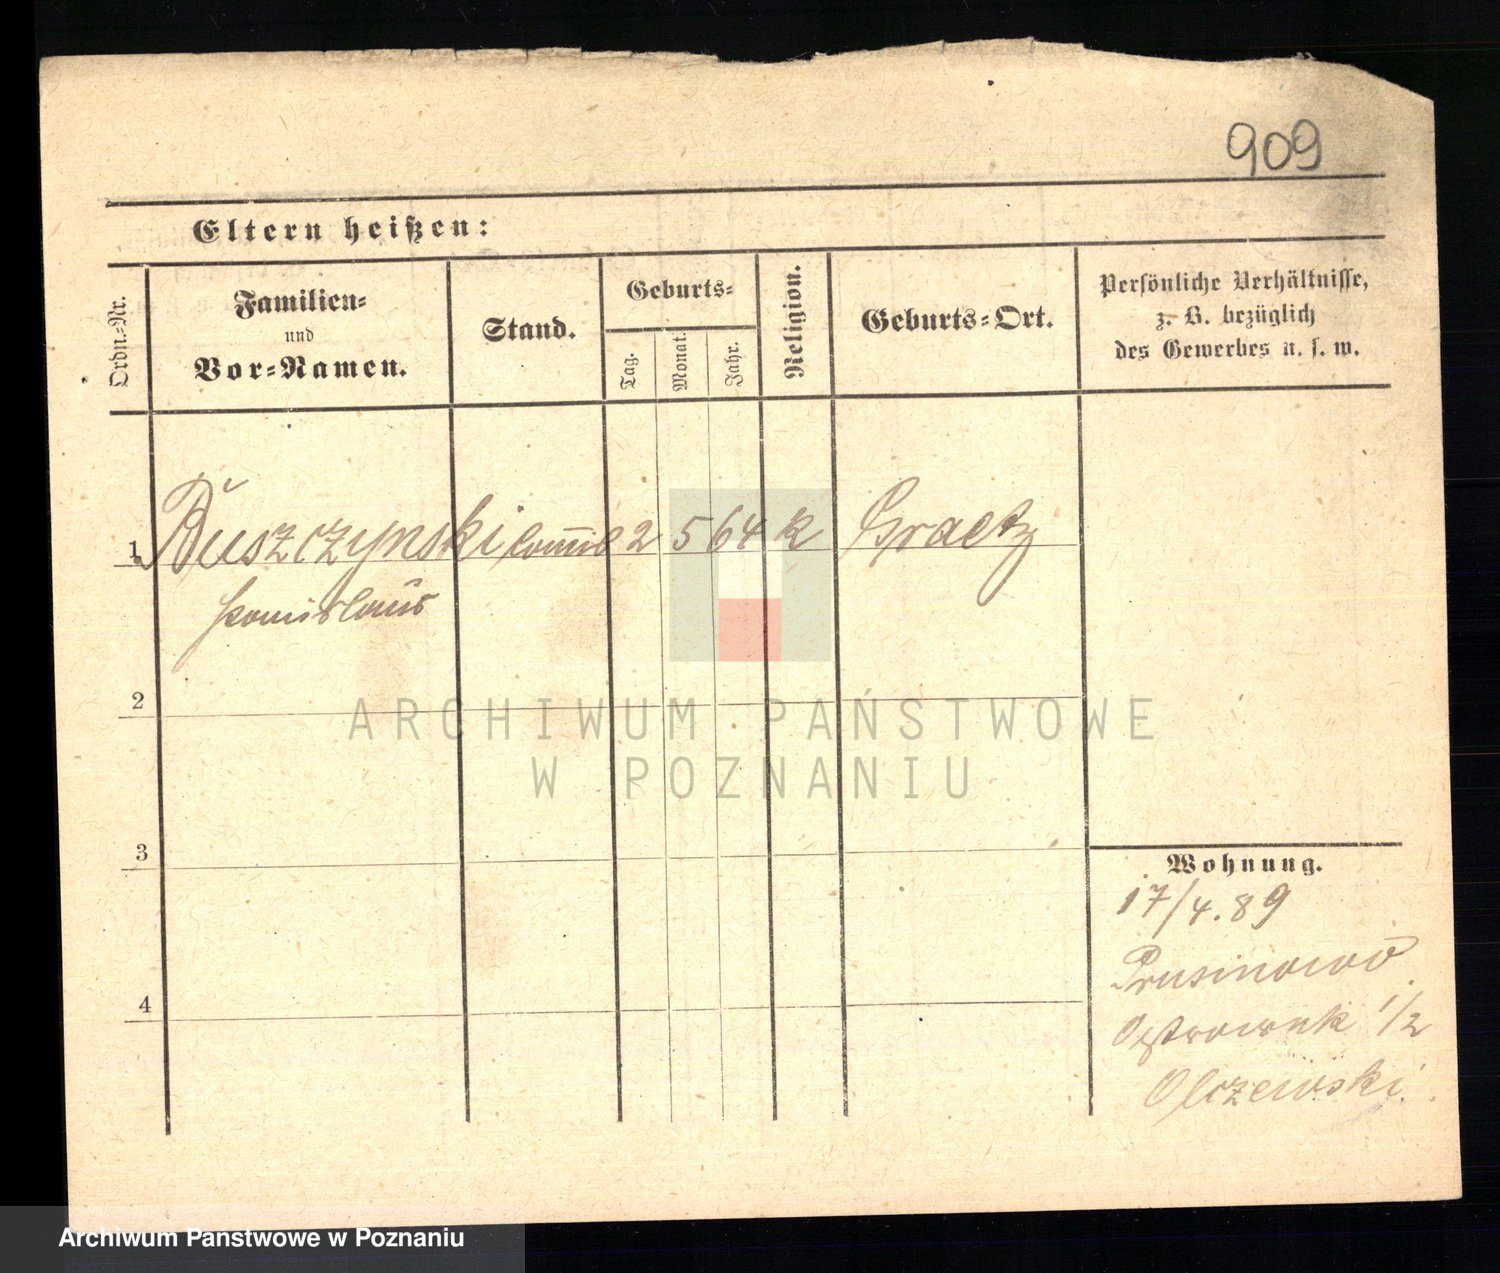 909
Eltern heißen:
Ordn.-Nr.
Familien-
und
Vor-Namen.
Stand.
Geburts-
Tag.
Monat.
Jahr.
Religion.
Geburts-Ort.
Persönliche Verhältnisse,
z. B. bezüglich
des Gewerbes u. s. w.
1 Buszczynski 2 5 64 k Graetz
Stanislaus
2
3
4
Wohnung.
17/4.89
Prusinowo
Ostrowek 1/2
Olczewski.
ARCHIWUM PAŃSTWOWE
W POZNANIU
Archiwum Państwowe w Poznaniu